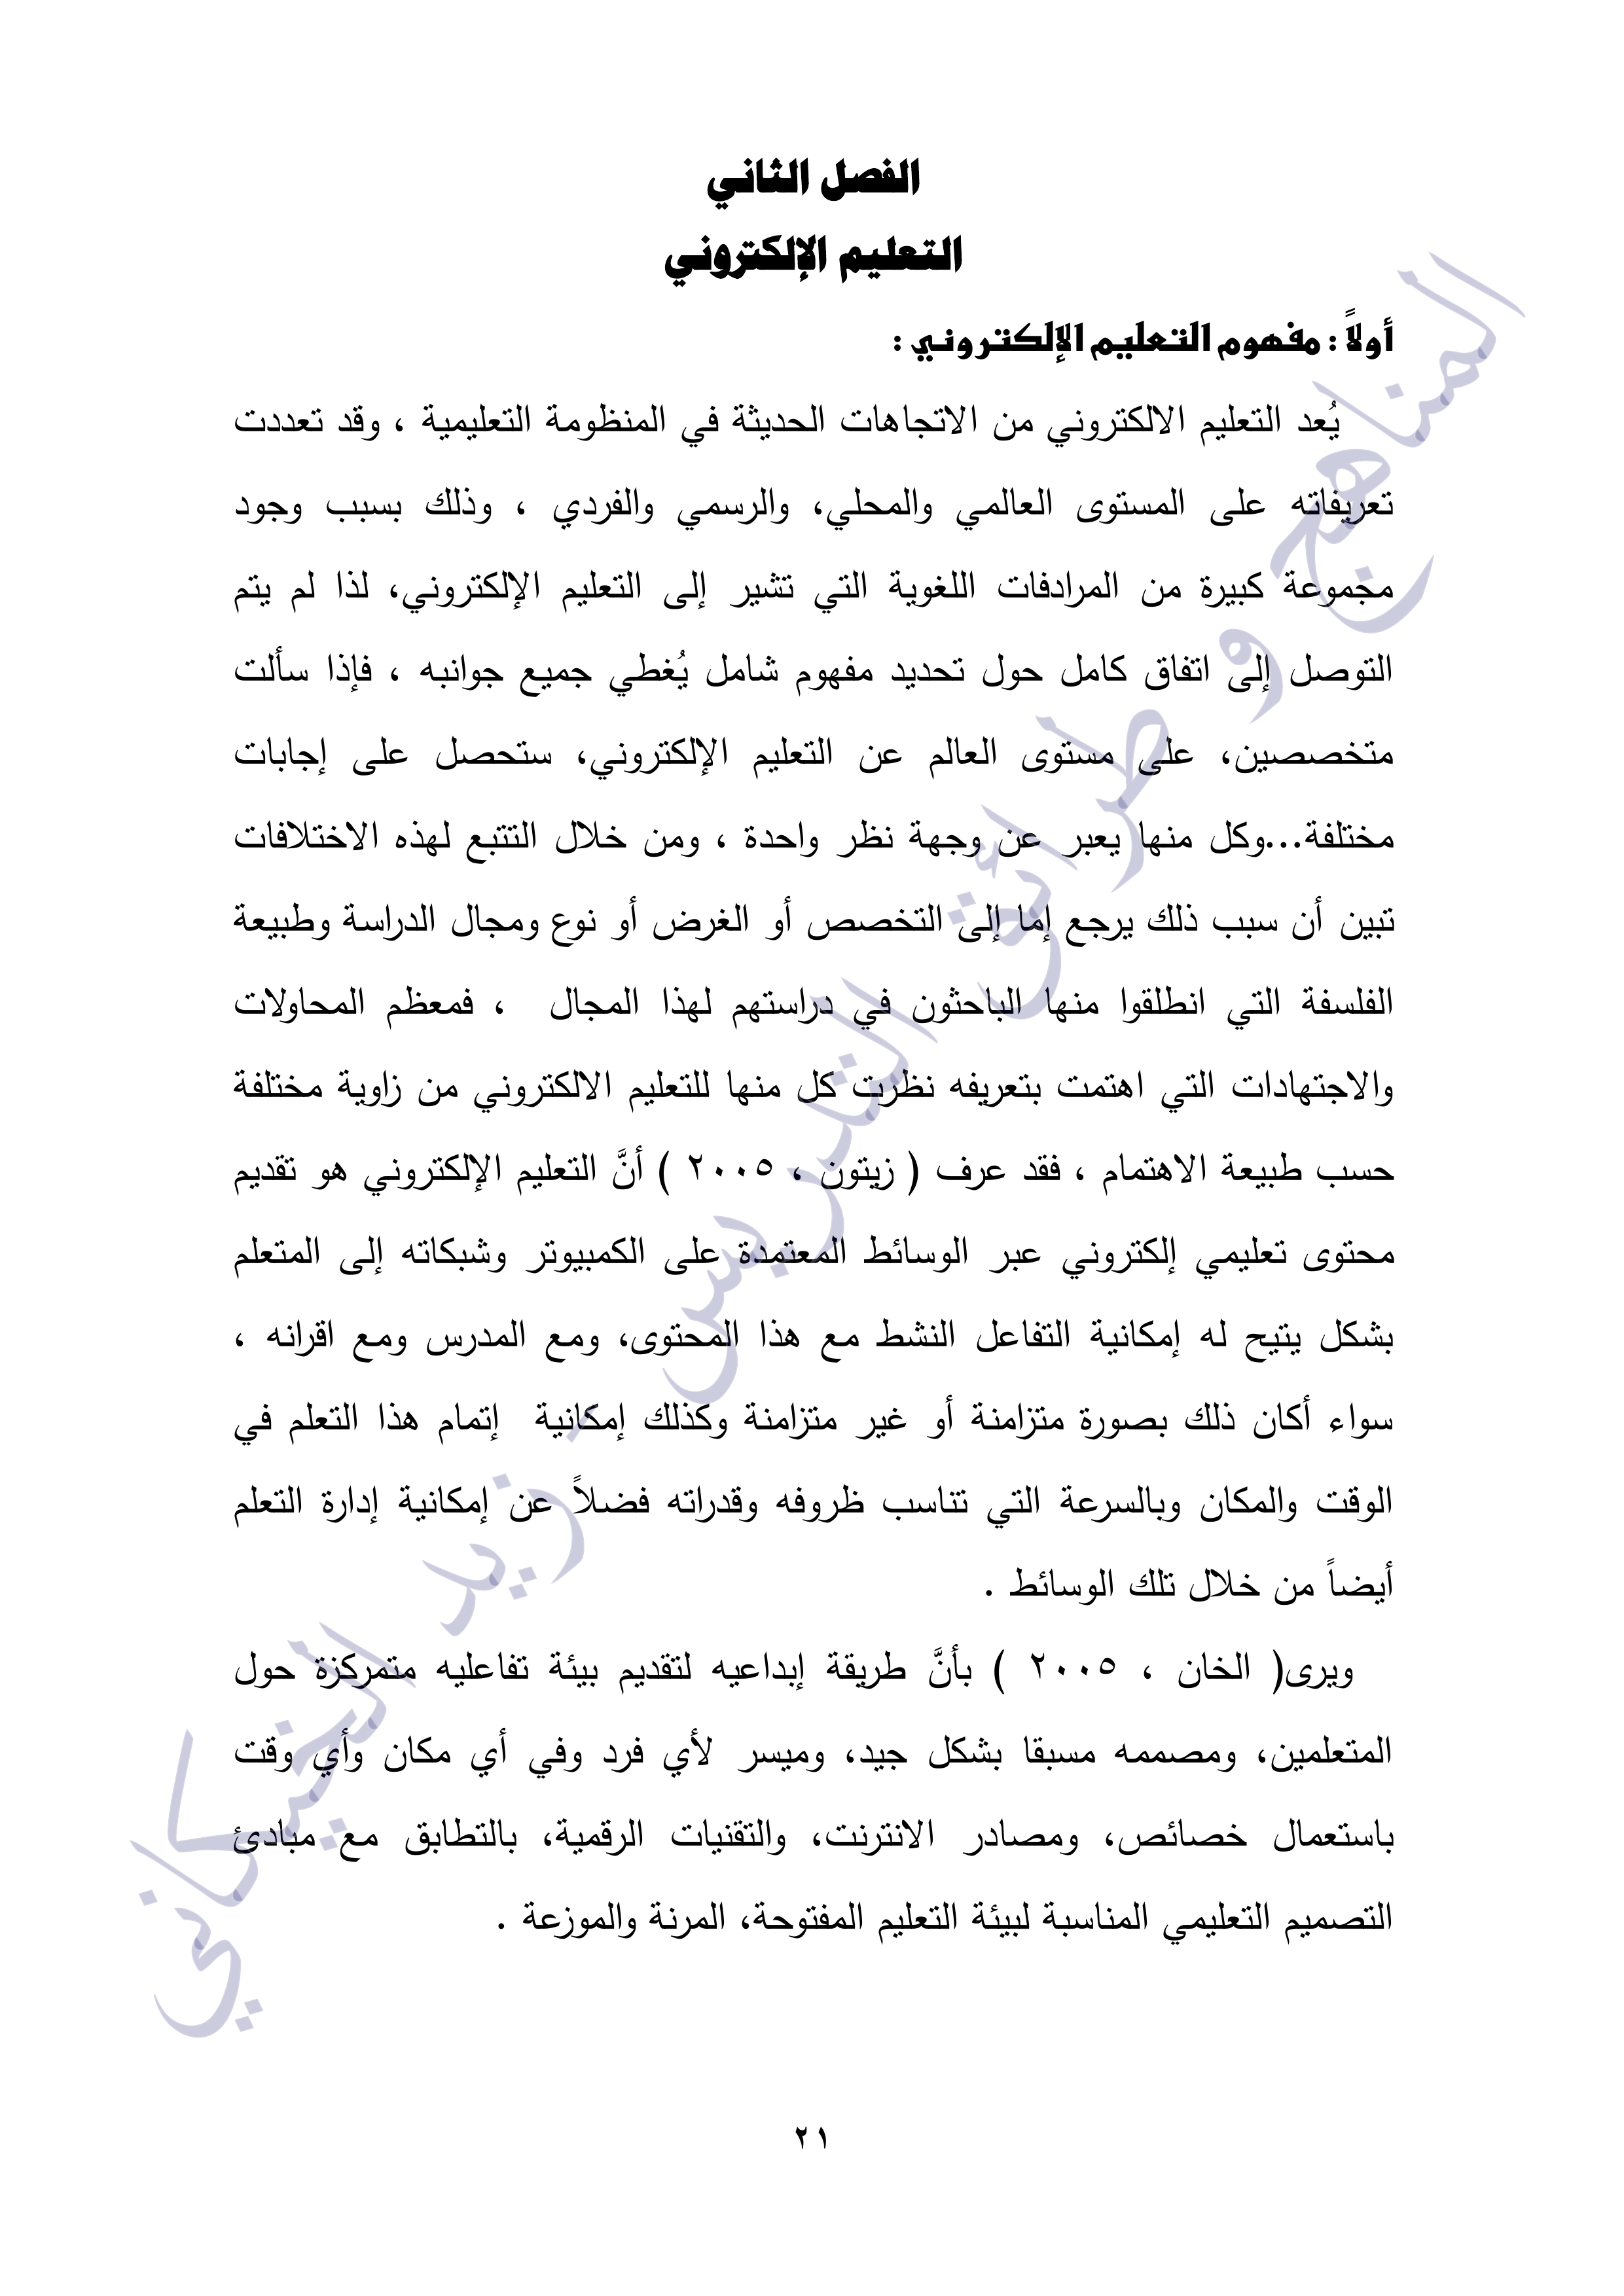 الفصل الثاني
التعليم الإلكتروني
أولاً : مفهوم التعليم الإلكتروني :
يُعد التعليم الالكتروني من الاتجاهات الحديثة في المنظومة التعليمية ، وقد تعددت
تعريفاته على المستوى العالمي والمحلي، والرسمي والفردي ، وذلك بسبب وجود
مجموعة كبيرة من المرادفات اللغوية التي تشير إلى التعليم الإلكتروني، لذا لم يتم
التوصل إلى اتفاق كامل حول تحديد مفهوم شامل يُغطي جميع جوانبه ، فإذا سألت
متخصصين، على مستوى العالم عن التعليم الإلكتروني، ستحصل على إجابات
مختلفة...وكل منها يعبر عن وجهة نظر واحدة ، ومن خلال التتبع لهذه الاختلافات
تبين أن سبب ذلك يرجع إما إلى التخصص أو الغرض أو نوع ومجال الدراسة وطبيعة
الفلسفة التي انطلقوا منها الباحثون في دراستهم لهذا المجال ، فمعظم المحاولات
والاجتهادات التي اهتمت بتعريفه نظرت كل منها للتعليم الالكتروني من زاوية مختلفة
حسب طبيعة الاهتمام ، فقد عرف ( زيتون ، ٢٠٠٥ ) أنَّ التعليم الإلكتروني هو تقديم
محتوى تعليمي إلكتروني عبر الوسائط المعتمدة على الكمبيوتر وشبكاته إلى المتعلم
بشكل يتيح له إمكانية التفاعل النشط مع هذا المحتوى، ومع المدرس ومع اقرانه ،
سواء أكان ذلك بصورة متزامنة أو غير متزامنة وكذلك إمكانية إتمام هذا التعلم في
الوقت والمكان وبالسرعة التي تناسب ظروفه وقدراته فضلاً عن إمكانية إدارة التعلم
أيضاً من خلال تلك الوسائط .
ويرى( الخان ، ٢٠٠٥ ) بأنَّ طريقة إبداعيه لتقديم بيئة تفاعليه متمركزة حول
المتعلمين، ومصممه مسبقا بشكل جيد، وميسر لأي فرد وفي أي مكان وأي وقت
باستعمال خصائص، ومصادر الانترنت، والتقنيات الرقمية، بالتطابق مع مبادئ
التصميم التعليمي المناسبة لبيئة التعليم المفتوحة، المرنة والموزعة .
المناهج و طرائق التدريس - زيد الخيكاني
٢١